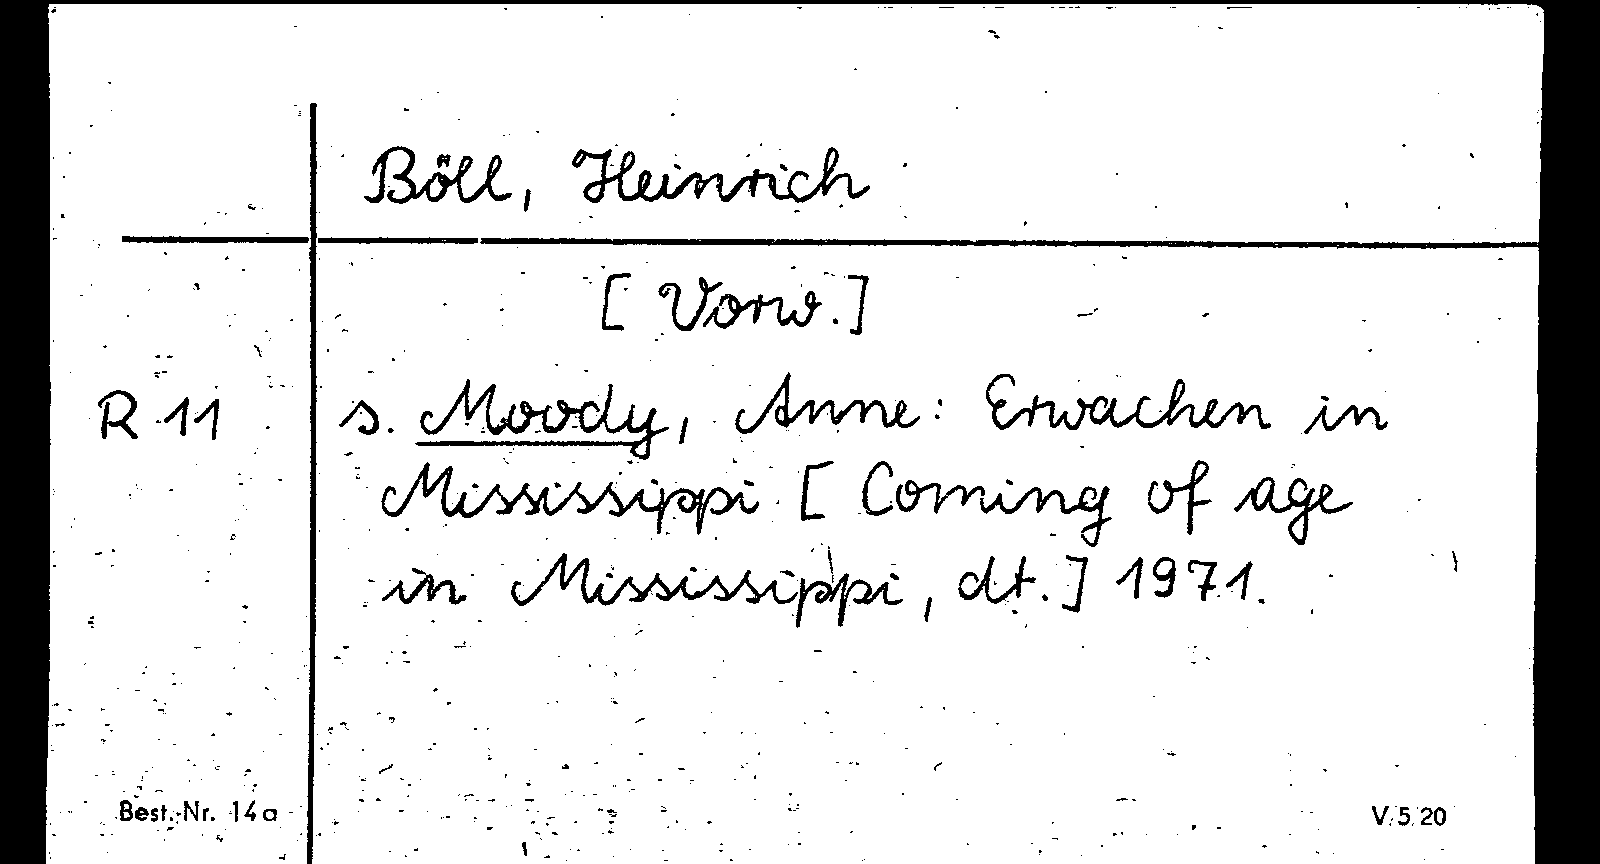 Böll, Heinrich
[Vorw.]
R 11 s. Moody, Anne: Erwachen in
Mississippi [Coming of age
in Mississippi, dt.] 1971.
Best.-Nr. 14a V.5.20